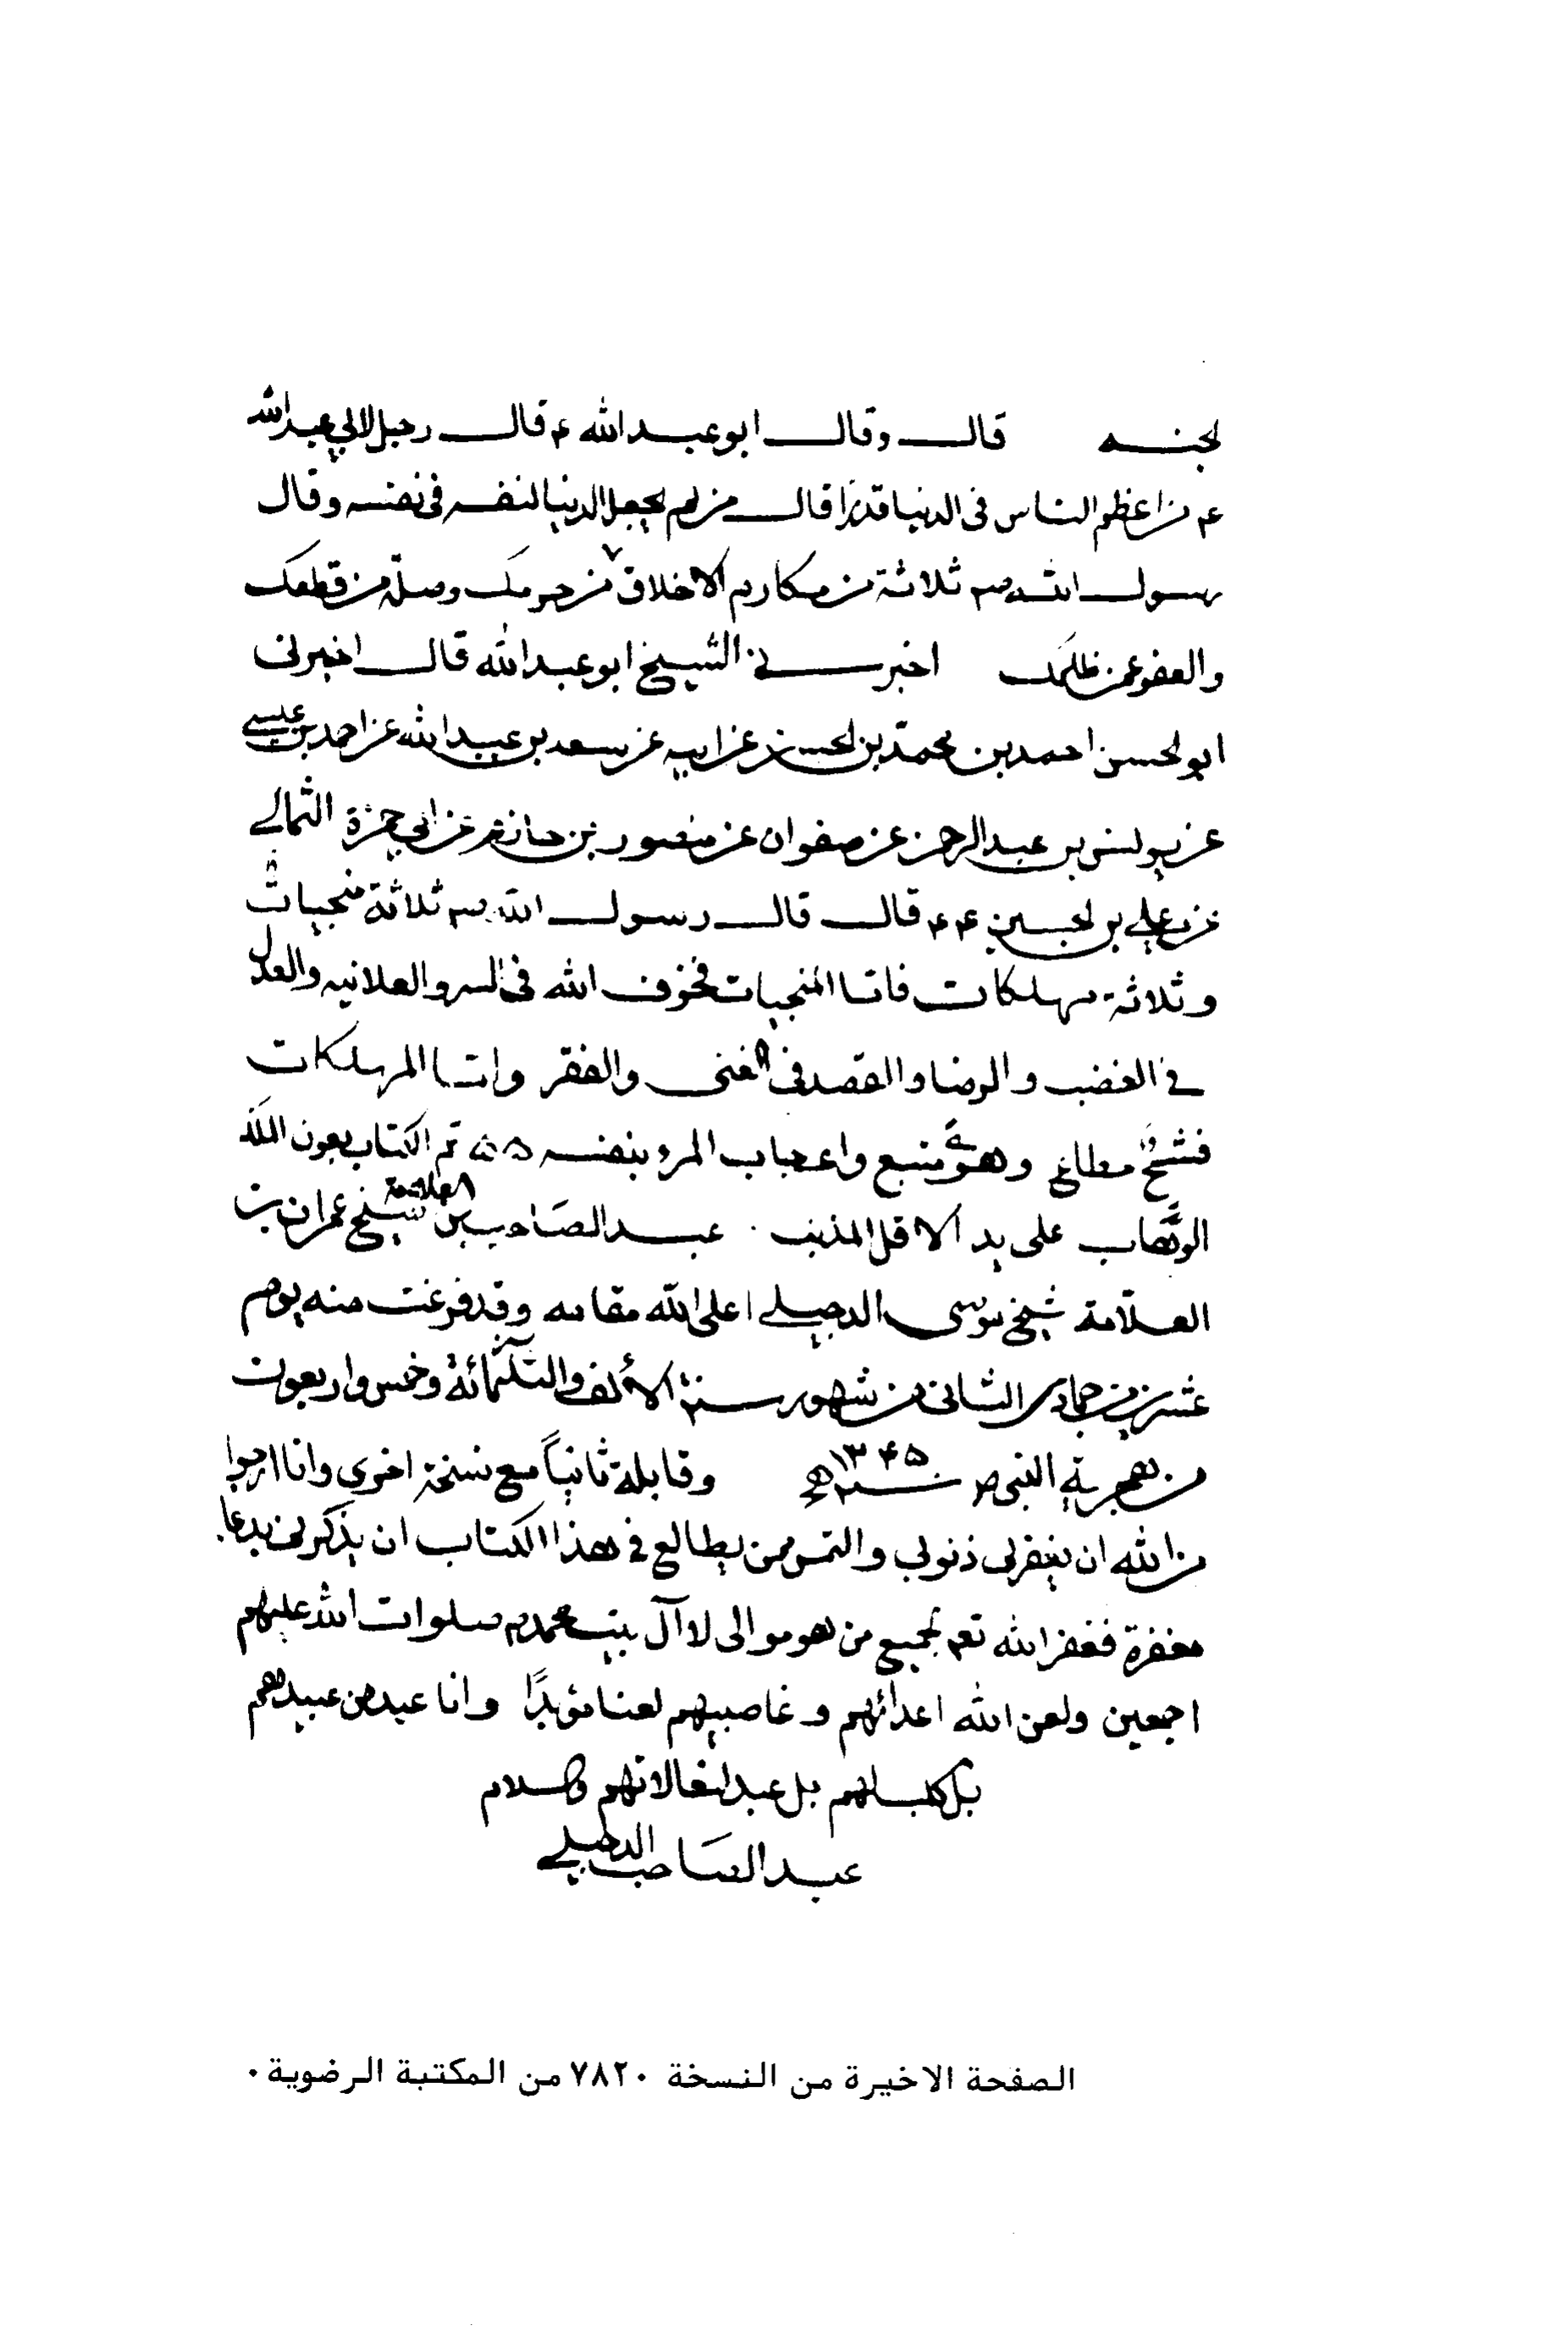 لجنه قال وقال ابو عبد الله ع قال رجل لابي عبد الله
ع من اعظم الناس فى الدنيا قدرًا قال من لم يجعل الدنيا لنفسه فى نفسه وقال
رسول الله ص ثلاثة من مكارم الاخلاق من حرمك وصلة من قطعك
والعفو عمن ظلمك اخبرنى الشيخ ابو عبد الله قال اخبرنى
ابو لحسن احمد بن محمد بن لحسن عن ابيه عن سعد بن عبد الله عن احمد بن عيسى
عن يونس بن عبد الرحمن عن صفوان عن منصور بن حازم عن ابي حمزة الثمالي
عن علي بن لحسين ع ع قال قال رسول الله ص ثلاثة منجيات
وثلاثة مهلكات فاما المنجيات فخوف الله فى السر والعلانيه والعدل
في الغضب والرضا والقصد فى الغنى والفقر واما المهلكات
فشحّ مطاع وهوىً متبع واعجاب المرء بنفسه تم الكتاب بعون الملك
الوهّاب على يد الاقل المذنب عبد الصاحب بن العلامة شيخ عمران بن
العلّامة شيخ موسى الدجيلي اعلى الله مقامه وقد فرغت منه يوم
عشرين من جمادى الثانى من شهور سنة الألف والثلثمائة وخمس واربعون
من هجرية النبى ص سنة ١٣٤٥ هج وقابلة ثانياً مع نسخة اخرى وانا ارجوا
من الله ان يغفر لى ذنوبى والتمس ممن يطالع في هذا الكتاب ان يذكرنى بدعا
مغفرة فغفر الله تعم لجميع من هو موالى لاآل بيت محمد ص صلوات الله عليهم
اجمعين ولعن الله اعدائهم وغاصبيهم لعنا مؤبدًا وانا عبد من عبيدهم
بل كلب لهم بل عبد لمغالاتهم والسلام
عبد الصاحب الدجيلي
الصفحة الاخيرة من النسخة ٧٨٢٠ من المكتبة الرضوية .